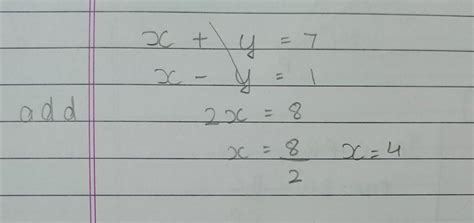 x + y = 7
x - y = 1
add 2x = 8
x = 8/2 x = 4